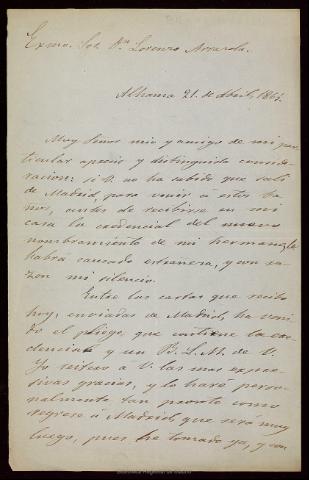 Exmo. Sor. Dn. Lorenzo Arrazola.
Alhama 21. de Abril, 1864.
Muy Señor mio y amigo de mi par-
ticular aprecio y distinguida conside-
racion: si V. no ha sabido que salí
de Madrid, para venir á estos Ba-
ños, antes de recibirse en mi
casa la credencial del nuevo
nombramiento de mi hermano, le
habrá causado estrañeza, y con ra-
zon mi silencio.
Entre las cartas que recibo
hoy, enviadas de Madrid, ha veni-
do el pliego, que contiene la cre-
dencial y un B. L. M. de V.
Yo reitero á V. las mas expre-
sivas gracias, y lo hará perso-
nalmente tan pronto como
regrese á Madrid, que será muy
luego, pues he tomado ya, y con